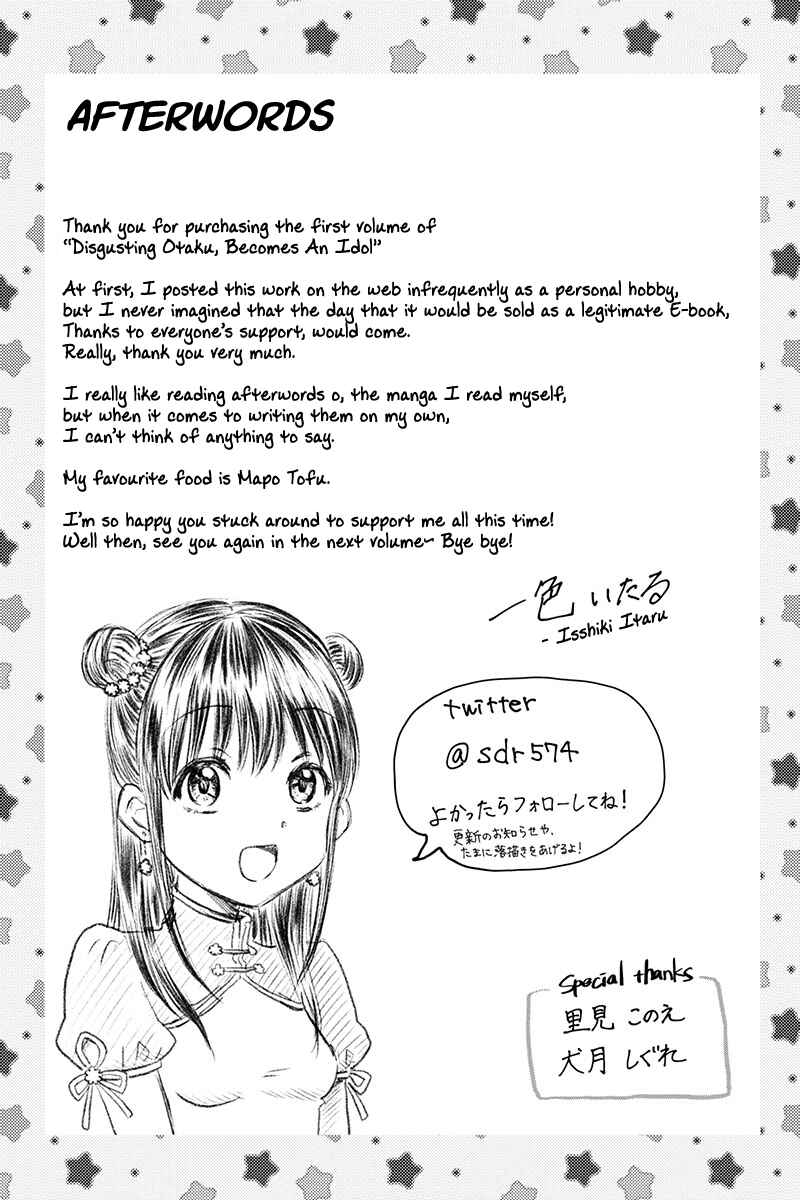 AFTERWORDS
Thank you for purchasing the first volume of
"Disgusting Otaku, Becomes An Idol"
At first, I posted this work on the web infrequently as a personal hobby,
but I never imagined that the day that it would be sold as a legitimate E-book,
Thanks to everyone's support, would come.
Really, thank you very much.
I really like reading afterwords o, the manga I read myself,
but when it comes to writing them on my own,
I can't think of anything to say.
My favourite food is Mapo Tofu.
I'm so happy you stuck around to support me all this time!
Well then, see you again in the next volume~ Bye bye!
一色 いたる
- Isshiki Itaru
twitter
@sdr574
よかったらフォローしてね!
更新のお知らせや、
たまに落描きをあげるよ!
Special thanks
里見 このえ
犬月 しぐれ